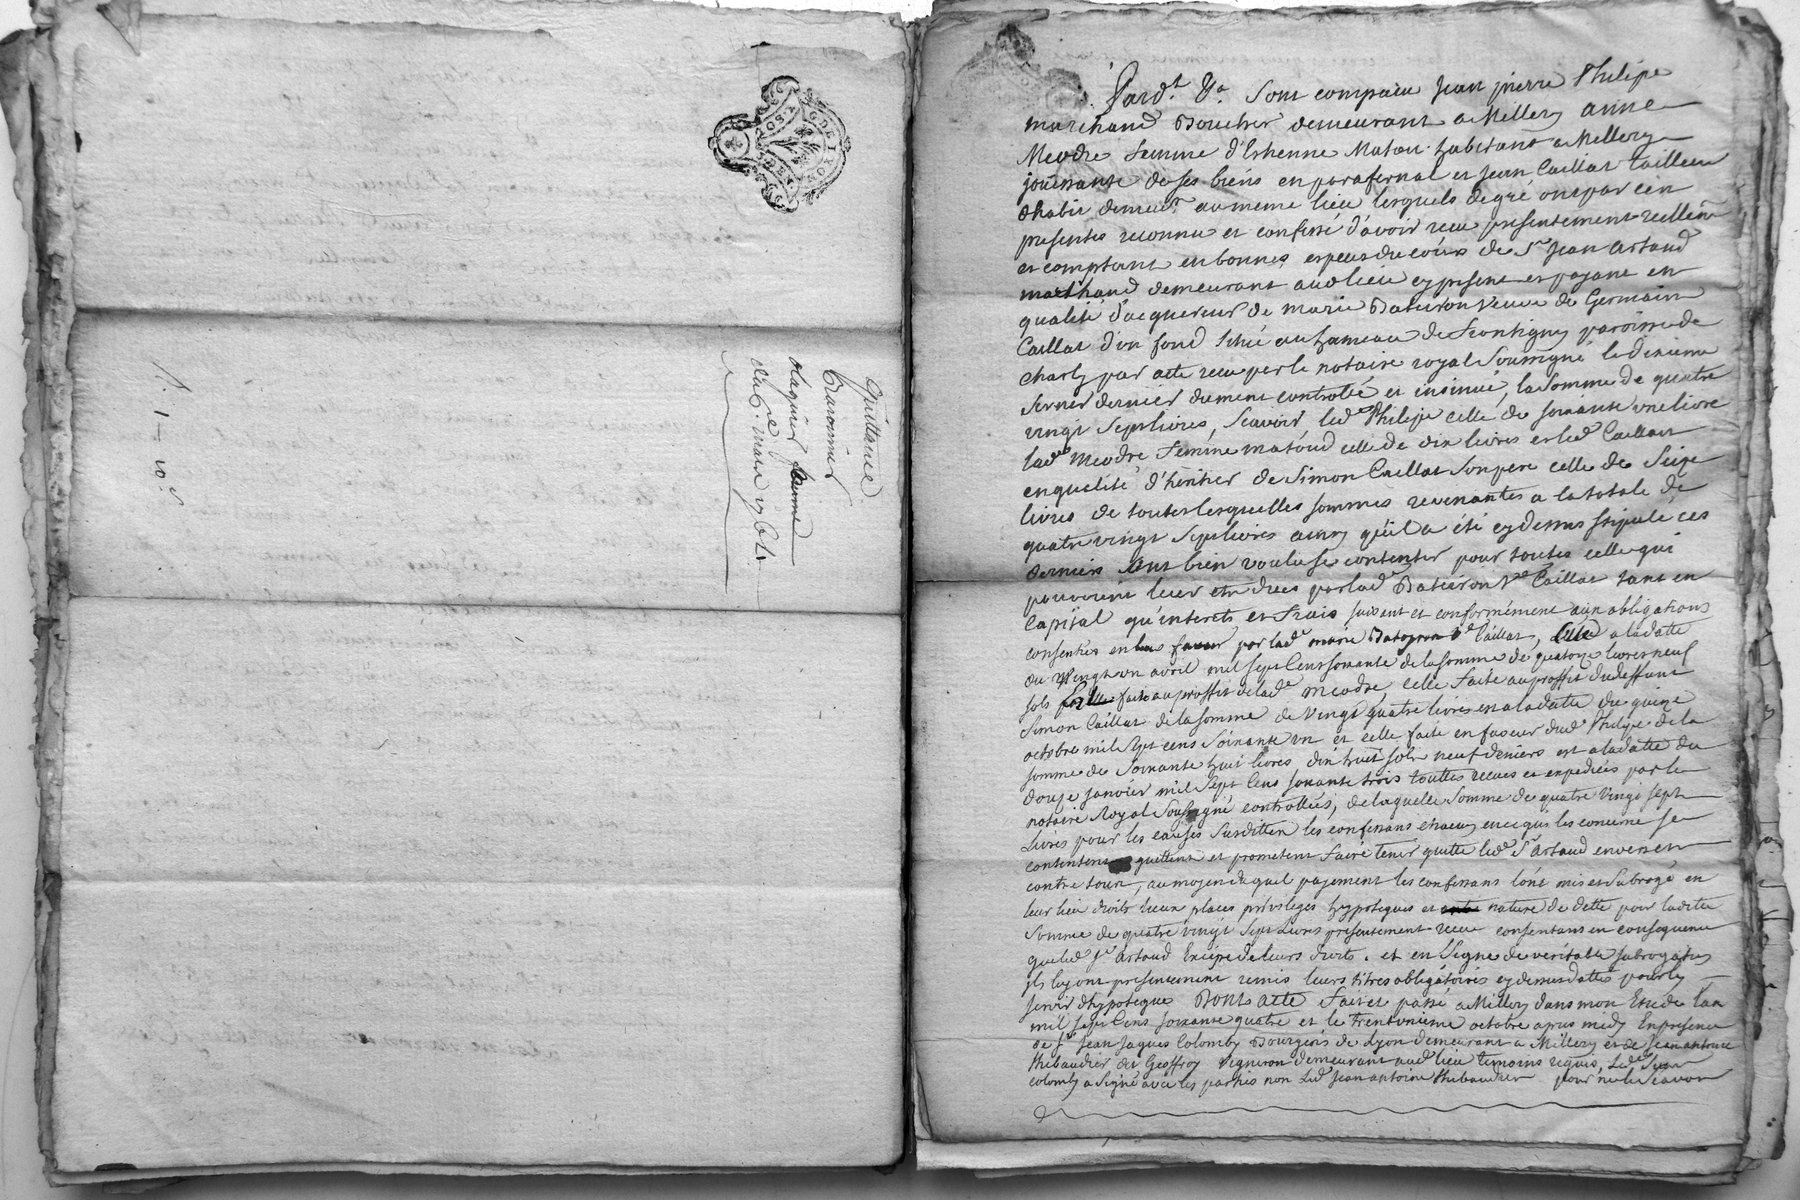 GDE LYON
Quittance
Travounier
Claquier femme
du
1. 1 — 10 s
Pard.t &a. Sont comparu Jean pierre Philipe
marchand Boucher demeurant a Millery anne
Meodre femme d'Estienne Matou habitans a Millery
jouissante de ses biens en parafernal et Jean Caillat tailleur
d'habit demeur.t au meme lieu lesquels de gré ont par ces
presentes reconnu et confessé d'avoir receu presentement reellem.t
et comptant en bonnes especes du cours de S.r Jean Artaud
marchand demeurant aud lieu cy present et payant en
qualité d'acquereur de marie Bateiron veuve de Germain
Caillat d'un fond situé au hameau de Frontigny paroisse de
Charly par acte receu par le notaire royal soussigné le dixieme
fevrier dernier duement controllé et insinué, la somme de quatre
vingt sept livres, scavoir led.t Philipe celle de soixante une livre
lad.e Meodre femme matoud celle de dix livres et led. Caillat
en qualité d'heritier de Simon Caillat son pere celle de Seize
livres de toutes lesquelles sommes revenantes a la totale de
quatre vingt sept livres ainsy qu'il a été cy dessus stipulé ces
derniers ont bien voulu se contenter pour toutes celles qui
pouvoient leur etre dues par lad.e Bateiron v.e Caillat tant en
Capital qu'interets et frais suivent et conformement aux obligations
consenties en leur faveur par lad.e marie Bateyron v.e Caillat, a la datte
du vingt un avril mil sept cens soixante de la somme de quatorze livres neuf
sols faite au proffit de lad.e Meodre, celle faite au proffit du deffunt
Simon Caillat de la somme de vingt quatre livres en a la datte du quinze
octobre mil sept cens soixante un et celle faite en faveur dud. Philipe de la
somme de soixante huit livres dix huit sols neuf deniers est a la datte du
douze janvier mil sept cens soixante trois touttes receues et expediées par le
notaire Royal soussigné controllées, de laquelle somme de quatre vingt sept
Livres pour les causes susdittes les confessans chacun en ce qui les concerne se
contentent quittent et prometent faire tenir quitte led. S.r Artaud envers et
contre tous, au moyen duquel payement les confessans l'ont mis et subrogé en
leur lieu droits lieux places privileges hypoteques et nature de dette pour ladite
somme de quatre vingt sept Livres presentement receue consentans en consequence
que led. S.r Artaud Excipe de leurs droits. et en Signe de veritable subrogation
ils luy ont presentement remis leurs titres obligatoires cy dessus dattés pour luy
servir d'hypoteque Dont Acte Fait et passé a Millery dans mon Etude l'an
mil sept cens soixante quatre et le trente unieme octobre apres midy En presence
de S.r Jean Jaques Colomby Bourgeois de Lyon demeurant a Millery et de Jean antoine
Thibaudier dit Geoffroy vigneron demeurant aud. lieu temoins requis, Led. Sieur
colomby a signé avec les parties non Led. Jean antoine Thibaudier pour ne le Scavoir